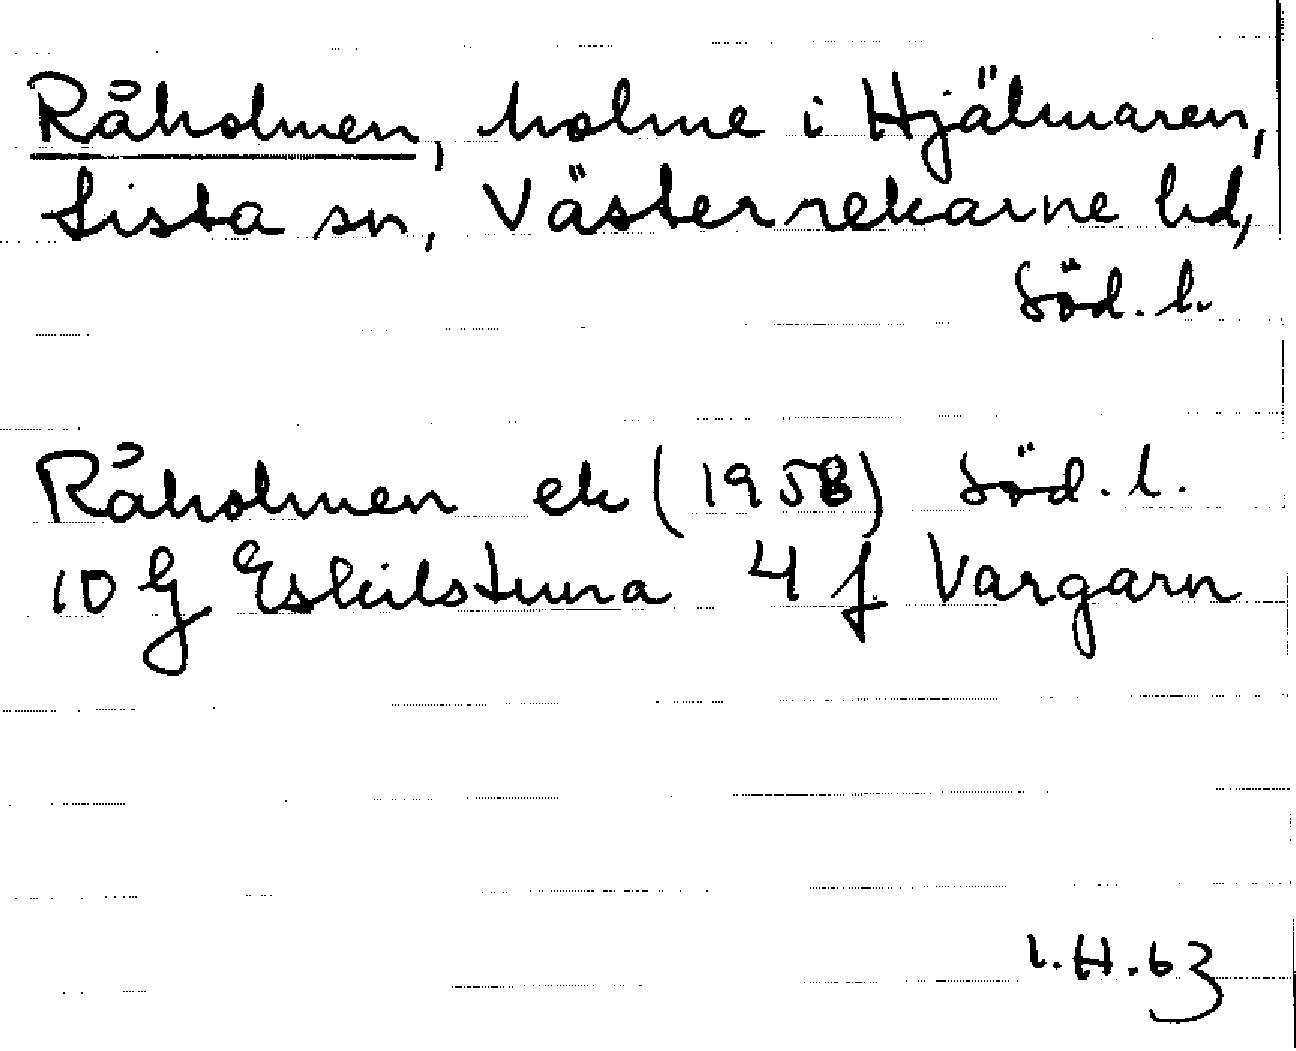 Råholmen, holme i Hjälmaren,
Lista sn, Västerrekarne hd,
Söd. l.
Råholmen ek (1958) Söd. l.
10 G Eskilstuna 4 f Vargarn
I.H. 63